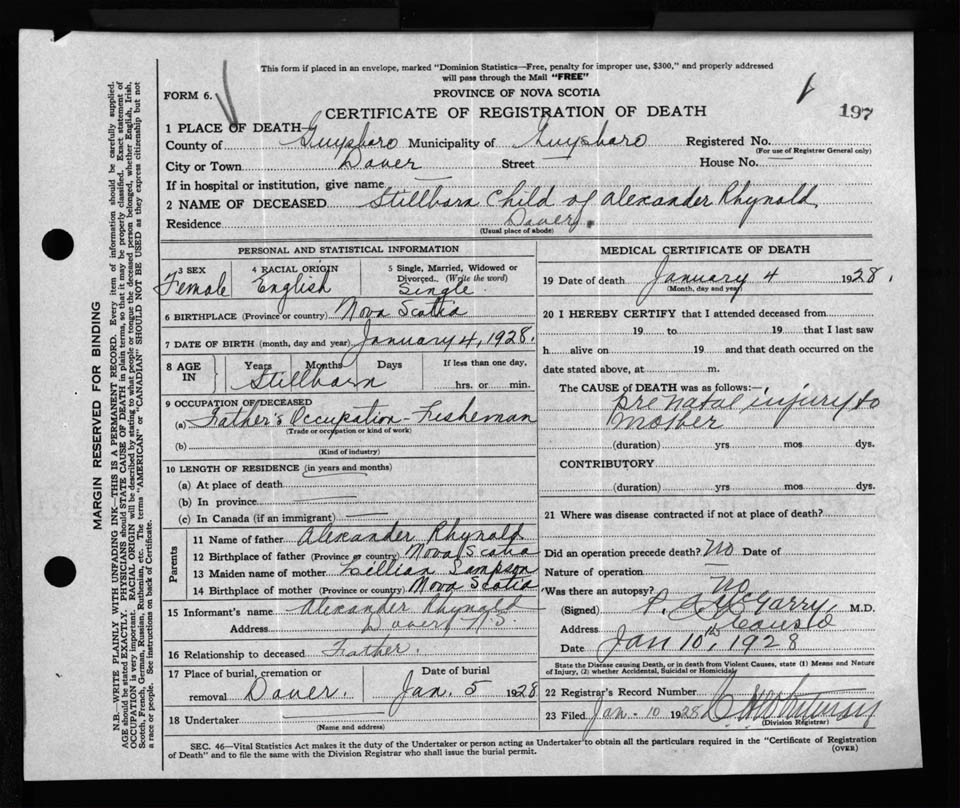 This form if placed in an envelope, marked "Dominion Statistics—Free, penalty for improper use, $300," and properly addressed
will pass through the Mail "FREE"
FORM 6.
PROVINCE OF NOVA SCOTIA
CERTIFICATE OF REGISTRATION OF DEATH
197
1 PLACE OF DEATH
County of Guysboro Municipality of Guysboro Registered No.
(For use of Registrar General only)
City or Town Dover Street — House No. —
If in hospital or institution, give name —
2 NAME OF DECEASED Stillborn Child of Alexander Rhynold
Residence Dover
(Usual place of abode)
PERSONAL AND STATISTICAL INFORMATION
3 SEX 4 RACIAL ORIGIN 5 Single, Married, Widowed or
Divorced. (Write the word)
Female English Single
6 BIRTHPLACE (Province or country) Nova Scotia
7 DATE OF BIRTH (month, day and year) January 4, 1928.
8 AGE IN Years Months Days If less than one day,
Stillborn hrs. or min.
9 OCCUPATION OF DECEASED
(a) Father's Occupation - Fisheman
(Trade or occupation or kind of work)
(b)
(Kind of industry)
10 LENGTH OF RESIDENCE (in years and months)
(a) At place of death
(b) In province
(c) In Canada (if an immigrant)
Parents
11 Name of father Alexander Rhynold
12 Birthplace of father (Province or country) Nova Scotia
13 Maiden name of mother Lillian Sampson
14 Birthplace of mother (Province or country) Nova Scotia
15 Informant's name Alexander Rhynold
Address Dover N.S.
16 Relationship to deceased Father.
17 Place of burial, cremation or Date of burial
removal Dover. Jan. 5 1928
18 Undertaker
(Name and address)
MEDICAL CERTIFICATE OF DEATH
19 Date of death January 4 1928.
(Month, day and year)
20 I HEREBY CERTIFY that I attended deceased from
19 to 19 that I last saw
h alive on 19 and that death occurred on the
date stated above, at m.
The CAUSE of DEATH was as follows:
prenatal injury to
mother
(duration) yrs mos dys.
CONTRIBUTORY
(duration) yrs mos dys.
21 Where was disease contracted if not at place of death?
Did an operation precede death? No Date of
Nature of operation
Was there an autopsy? No
(Signed) McGarry M.D.
Address Canso
Date Jan 10th, 1928
State the Disease causing Death, or in death from Violent Causes, state (1) Means and Nature
of Injury, (2) whether Accidental, Suicidal or Homicidal
22 Registrar's Record Number
23 Filed Jan - 10 1928
(Division Registrar)
SEC. 46—Vital Statistics Act makes it the duty of the Undertaker or person acting as Undertaker to obtain all the particulars required in the "Certificate of Registration
of Death" and to file the same with the Division Registrar who shall issue the burial permit.
(OVER)
MARGIN RESERVED FOR BINDING
N.B.—WRITE PLAINLY WITH UNFADING INK—THIS IS A PERMANENT RECORD. Every item of information should be carefully supplied.
AGE should be stated EXACTLY. PHYSICIANS should STATE CAUSE OF DEATH in plain terms, so that it may be properly classified. Exact statement of
OCCUPATION is very important. RACIAL ORIGIN will be described by stating to what people or tongue the deceased person belonged, whether English, Irish,
Scotch, French, German, Russian, Ruthenian, etc. The terms "AMERICAN" or "CANADIAN" SHOULD NOT BE USED as they express citizenship but not
a race or people. See instructions on back of Certificate.